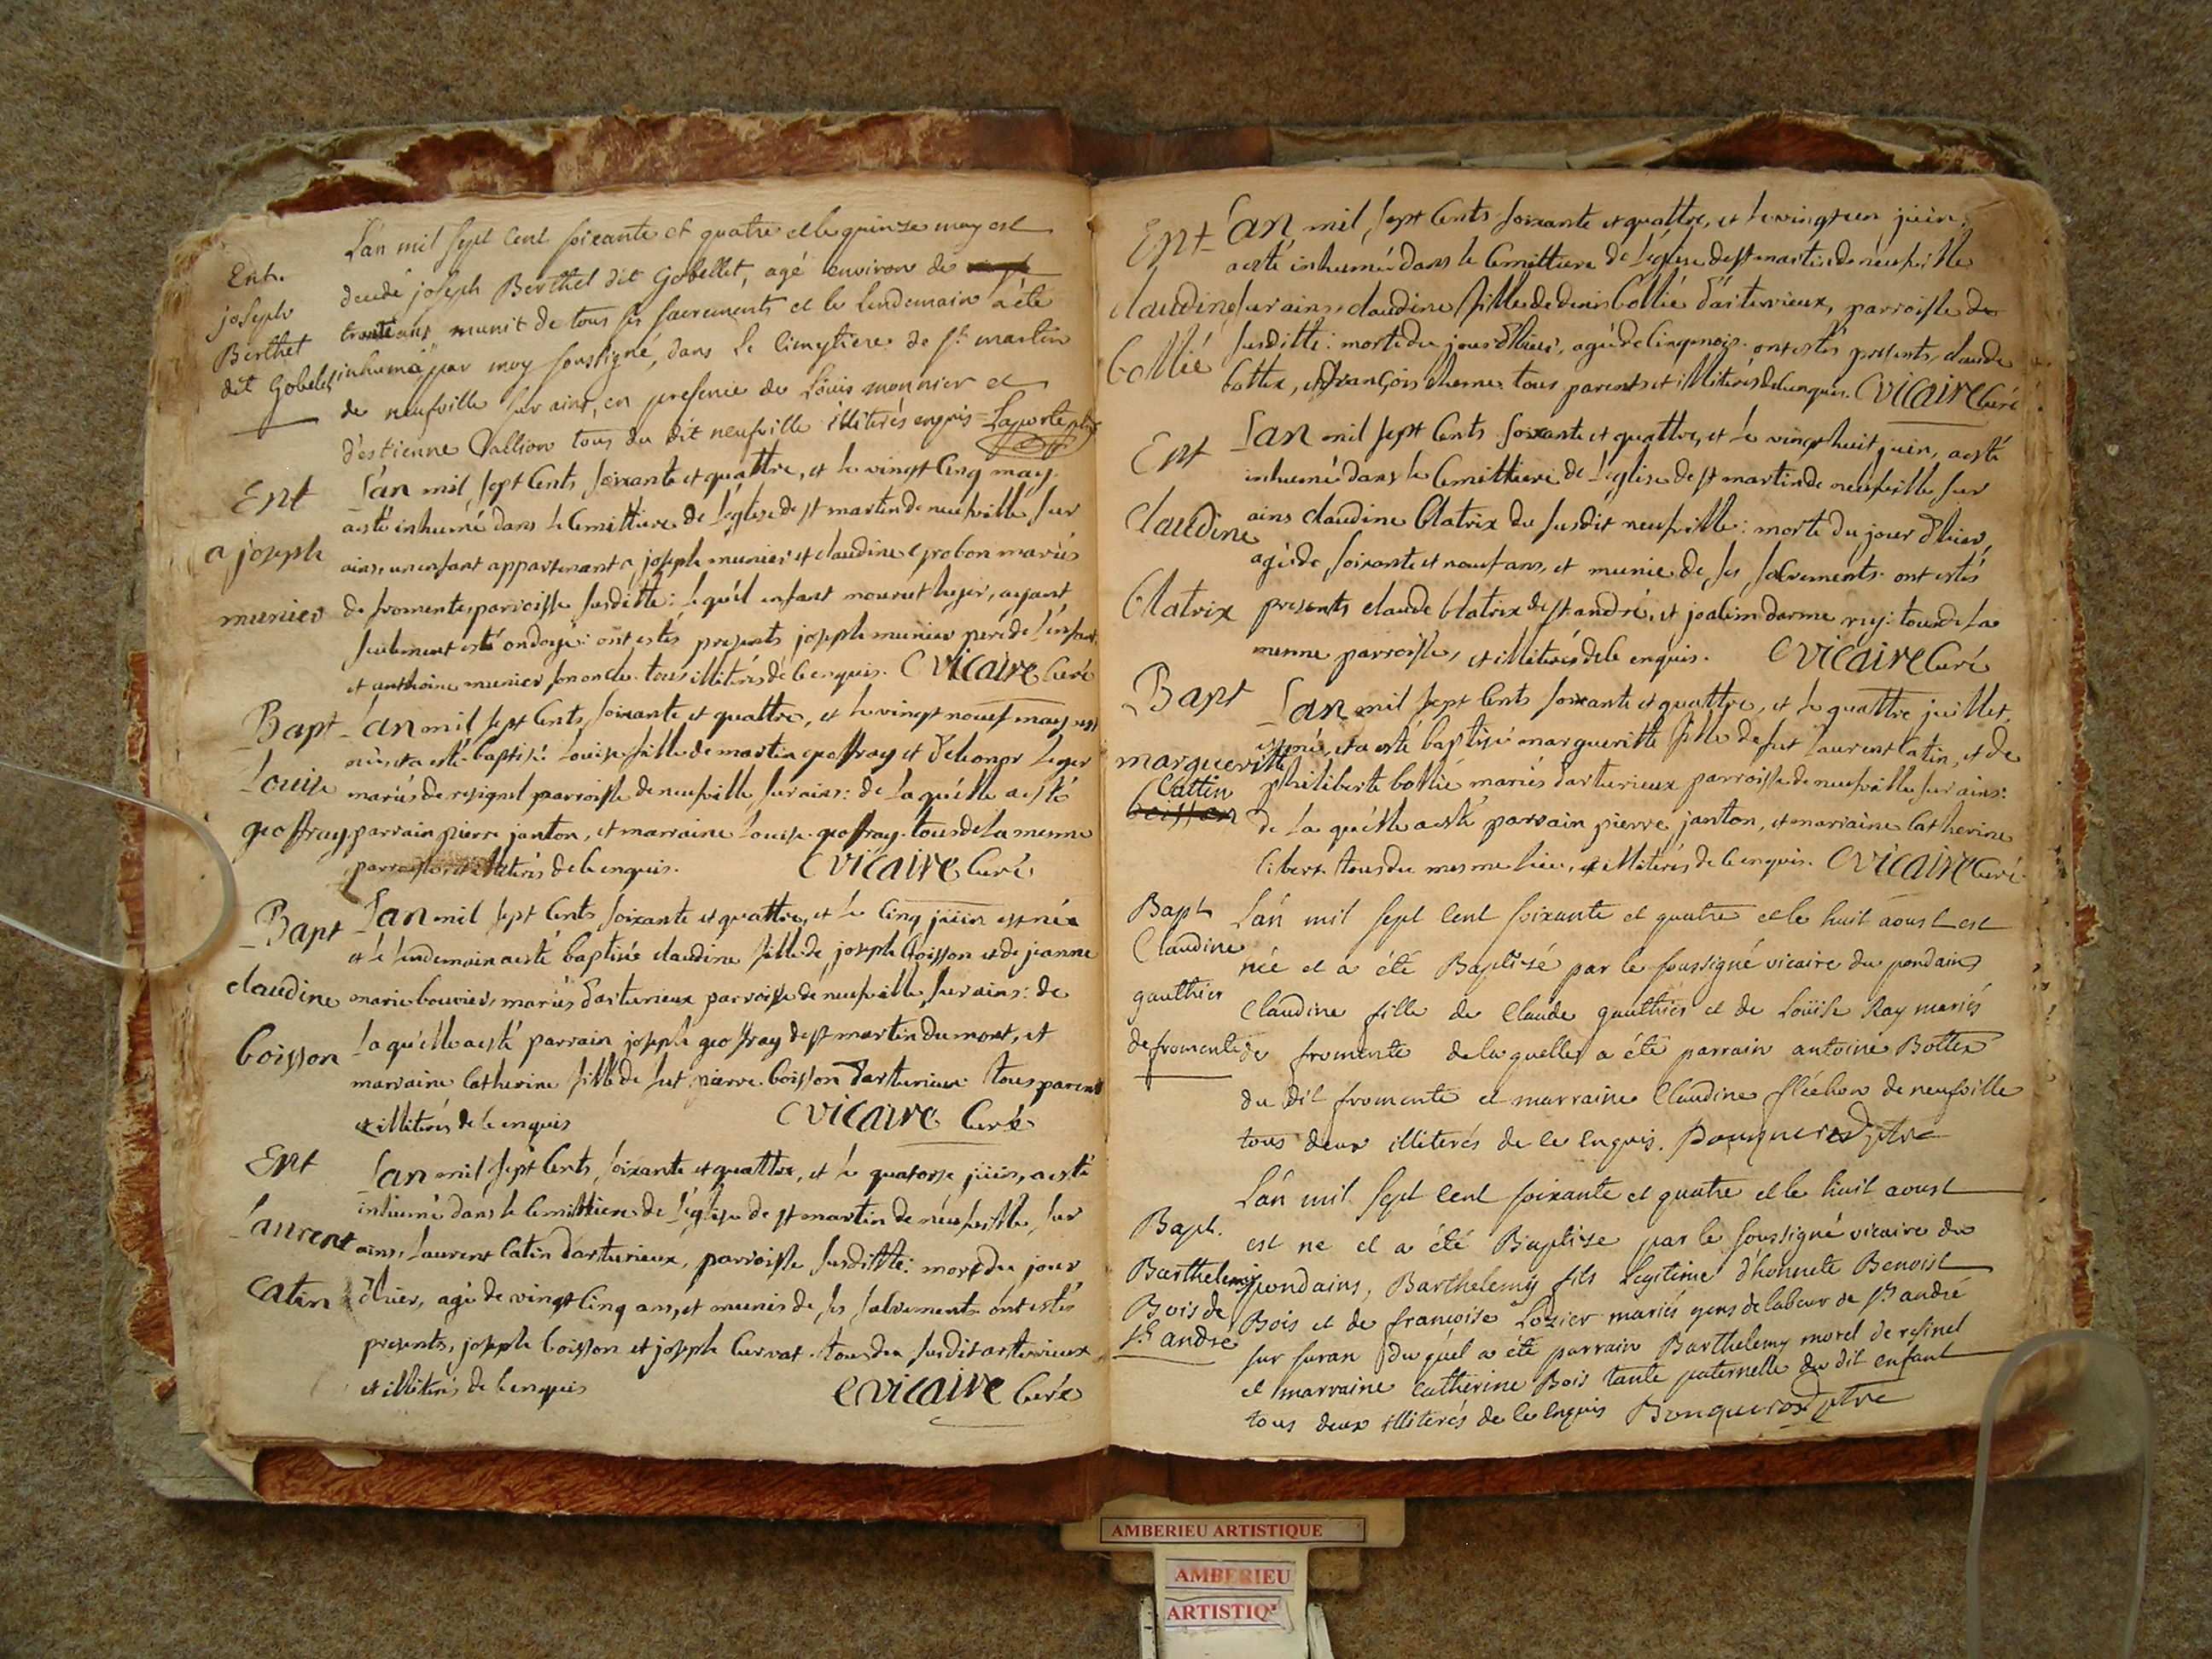 Ent.
joseph
Berthet
dit Gobelet
L'an mil sept cent soixante et quatre et le quinze may est
decedé joseph Berthet dit Gobellet, agé environ de
trente ans munit de tous ses sacrements et le lendemain a été
inhumé par moy soussigné, dans le cimytiere de st martin
de neufville sur ains, en presence de Loüis monnier et
d'estienne Vallion tous du dit neufville illiterés enquis = Laporte ptre
Ent
a joseph
munier
L'an mil sept cents soixante et quattre, et le vingt cinq may
a esté inhumé dans le cemittiere de l'église de st martin de neufville sur
ains, un enfant appartenant a joseph munier et claudine probon mariés
de fromente, parroisse susditte: le quél enfant mourut hyer, ayant
seulement esté ondoyé: ont estés presents joseph munier pere de l'enfant,
et anthoine munier son oncle. tous illitérés de ce enquis. Cvicaire Curé
Bapt
Louise
geoffray
L'an mil sept cents soixante et quattre, et le vingt neuf may est
née et a esté baptisé Louise fille de martin geoffray et d'eleonor Leger
mariés de resignel parroisse de neufville sur ains: de la quélle a esté
parrain pierre janton, et marraine Louise geoffray. tous de la mesme
parroisse, et illitérés de ce enquis. Cvicaire Curé
Bapt
claudine
boisson
L'an mil sept cents soixante et quattre, et le cinq jüin est née
et le lendemain a esté baptisée claudine fille de joseph boisson et de jeanne
marie bouvier, mariés d'arturieux parroisse de neufville sur ains: de
la quélle a esté parrain joseph geoffray de st martin du mont, et
marraine catherine fille de fut pierre boisson d'arturieux tous parents
et illitérés de ce enquis Cvicaire Curé
Ent
Laurent
Catin
L'an mil sept cents soixante et quattre, et le quatorse jüin, a esté
inhumé dans le cemittiere de l'église de st martin de néufville sur
ains, Laurent Catin d'arturieux, parroisse susditte: mort du jour
d'hier, agé de vingt cinq ans, et munis de ses sacrements ont estés
presents, joseph boisson et joseph Curvat. tous du susdit arturieux
et illitérés de ce enquis Cvicaire Curé
Ent
claudine
bollié
L'an mil sept cents soixante et quattre, et le vingt un juin,
a esté inhumé dans le cemittiere de l'église de st martin de néufville
sur ains, claudine fille de denis bollié d'arturieux, parroisse de
susditte: morte du jour d'hier, agé de cinq mois. ont estés presents, claude
bottex, et françois cherne tous parents et illitérés de ce enquis. Cvicaire Curé
Ent
Claudine
blatrix
L'an mil sept cents soixante et quattre, et le vingt huit juin, a esté
inhumé dans le cemittiere de l'église de st martin de neufville sur
ains claudine blatrix du susdit neufville: morte du jour d'hier,
agé de soixante et neuf ans, et munie de ses sacrements. ont estés
presents claude blatrix de st andré, et joakim darme tous de la
mesme parroisse, et illitérés de ce enquis. Cvicaire Curé
Bapt
marguerite
Cattin
boisson
L'an mil sept cents soixante et quattre, et le quattre juillet,
est née, et a esté baptisé margueritte fille de fut laurent Catin, et de
philiberte bollié mariés d'arturieux parroisse de neufville sur ains:
de la quélle a esté parrain pierre janton, et marraine Catherine
libert. tous du mesme lieu, et illitérés de ce enquis. Cvicaire Curé
Bapt
Claudine
gauthier
de fromente
L'an mil sept cent soixante et quatre et le huit aoust est
née et a été Baptizé par le soussigné vicaire du pondains
Claudine fille de Claude gauthier et de Loüise Ray mariés
de fromente de la quelle a été parrain antoine Bottex
du dit fromente et marraine Claudine fléchon de neufville
tous deux illiterés de ce enquis. Bouquerod ptre
Bapt.
Barthelemy
Bois de
st andré
L'an mil sept cent soixante et quatre et le huit aoust
est ne et a été Baptize par le soussigné vicaire du
pondains, Barthelemy fils legitime d'honnete Benoist
Bois et de françoise Lozier mariés gens de labeur de st andré
sur suran du quel a été parrain Barthelemy morel de resinel
et marraine catherine Bois tante paternelle du dit enfant
tous deux illiterés de ce enquis Bouquerod ptre
AMBERIEU ARTISTIQUE
AMBERIEU
ARTISTIQ